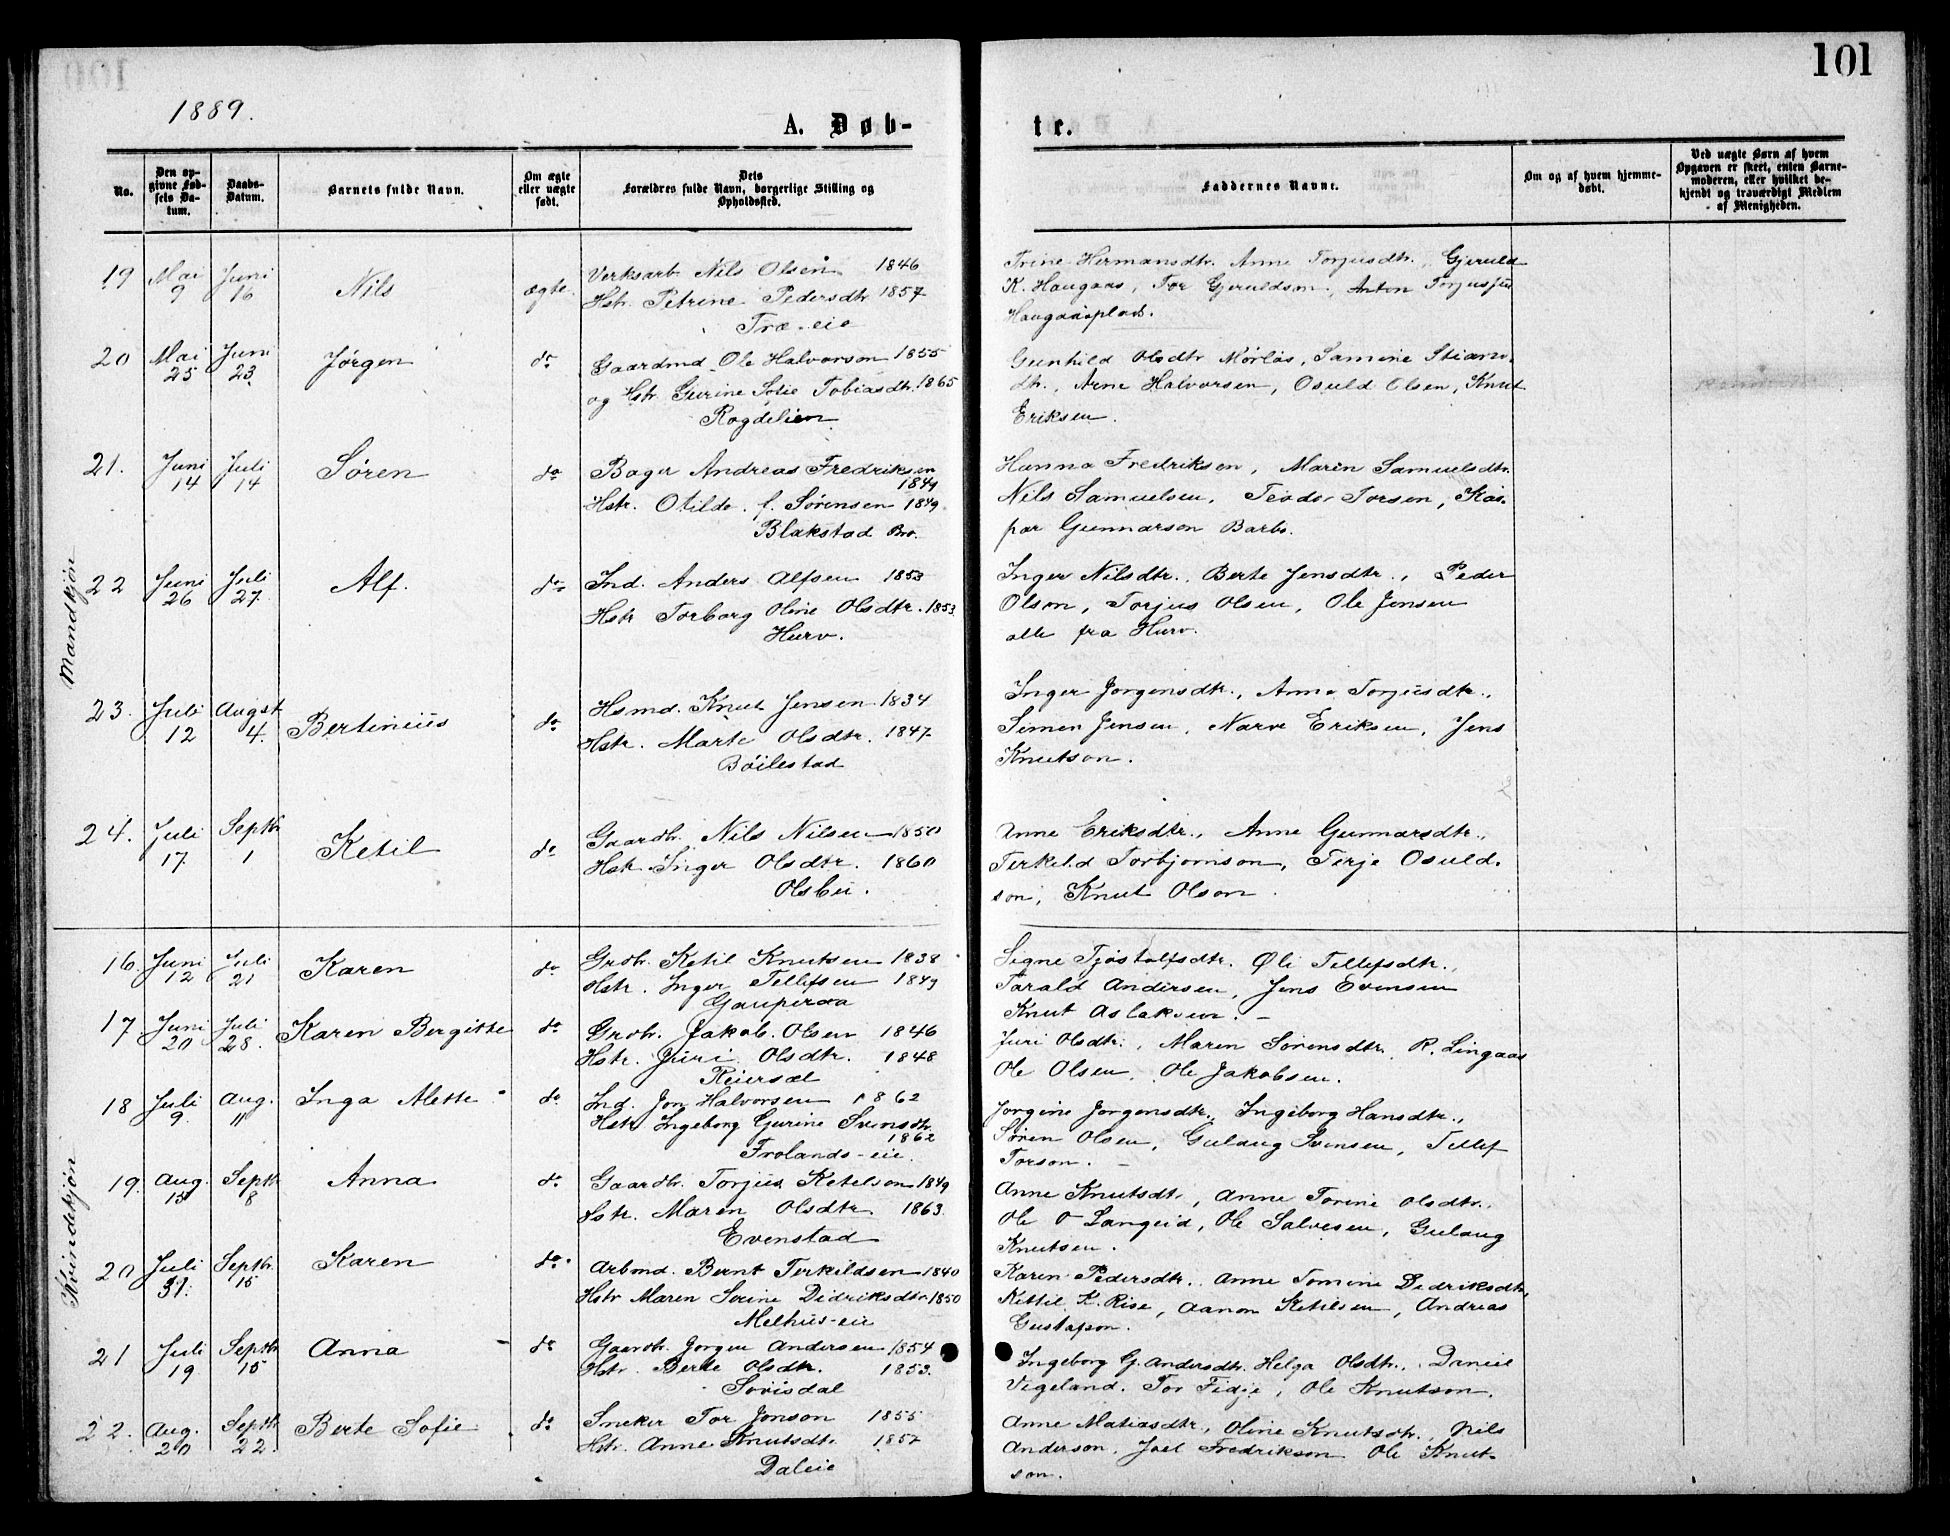 101
1889.
A. Døb-
te.
No.
Den op-
givne Fød-
sels Da-
tum.
Daabs-
Datum.
Barnets fulde Navn.
Om ægte
eller uægte
født.
Dets
Forældres fulde Navn, borgerlige Stilling og
Opholdssted.
Faddernes Navne.
Om og af hvem hjemme-
døbt.
Ved uægte Børn af hvem
Opgaven er skeet, enten Barne-
moderen, eller hvilket be-
kjendt og troværdigt Medlem
af Menigheden.
Mandkjøn
19 Mai 9 Juni 16 Nils ægte
Verksarb. Nils Olsen 1846
Hstr. Petrine Pedersdtr 1857
Træ-eie
Trine Hermansdtr. Anne Torjusdtr., Gjeruld
K. Haugaas, Tor Gjeruldson, Anton
Haugaasplads.
20 Mai 25 Juni 23 Jørgen do
Gaardmd. Ole Halvorson 1855
og Hstr. Gurine Sofie Tobiasdtr. 1865
Rogdelien
Gunhild Olsdtr Mørlås, Samine
dtr., Arne Halvorsen, Osuld Olsen, Knut
Eriksen.
21. Juni 14 Juli 14 Søren do
Bager Andreas Fredriksen
1849
Hstr. Otilde f. Sørensen 1849
Blakstad Bro.
Hanna Fredriksen, Maren Samuelsdtr.
Nils Samuelsen, Teodor Torsen, Kas-
par Gunnarson Barbo.
22 Juni 26 Juli 27. Alf. do
Ind. Anders Alfsen 1853
Hstr Torborg Oline Olsdtr. 1853
Hurv.
Inger Nilsdtr., Berte Jensdtr., Peder
Olson, Torjus Olsen, Ole Jensen
alle fra Hurv.
23. Juli 12 Augst 4. Bertinius do
Hsmd. Knut Jensen 1834
Hstr. Marte Olsdtr. 1847
Bøilestad
Inger Jorgensdtr., Anne Torjusdtr.,
Simen Jensen, Narve Eriksen, Jens
Knutson.
24. Juli 17. Septbr 1 Ketil do
Gaardbr. Nils Nilsen 1850
Hstr Inger Olsdtr. 1860
Olsbu.
Anne Eriksdtr., Anne Gunnarsdtr.,
Terkild Torbjornson, Terje Osuld-
son, Knut Olson.
Kvindekjøn
16. Juni 12 Juli 21 Karen do
Grdbr. Ketil Knutsen 1838
Hstr. Inger Tellefsen 1849
Gauperaa
Signe Tjøstolfsdtr. Øli Tellefsdtr.,
Tarald Andersen, Jens Evensen
Knut Aslaksen. –
17. Juni 20 Juli 28. Karen Bergitte do
Grdbr. Jakob Olsen 1846
Hstr. Juri Olsdtr. 1848
Reiersøl
Juri Olsdtr., Maren Sorensdtr. R. Lingaas
Ole Olsen, Ole Jakobsen.
18 Juli 9. Aug. 11 Inga Alette do
Ind. Jon Halvorsen 1862
Hstr Ingeborg Gurine Svensdtr.
1862
Frolands-eie.
Jorgine Jorgensdtr., Ingeborg Hansdtr.,
Søren Olsen, Gulaug Svensen, Tellef
Torson. –
19. Aug. 15 Septb 8 Anna do
Gaardbr. Torjus Ketelson 1849
Hstr. Maren Olsdtr 1863.
Evenstad
Anne Knutsdtr., Anne Torine Olsdtr.
Ole O Langeid, Ole Salvesen, Gulaug
Knutsen.
20 Juli 31. Septbr. 15 Karen do
Arbmd. Bernt Terkildsen 1840
Hstr Maren Serine Didriksdtr 1850
Melhus-eie
Karen Pedersdtr. Anne Tomine Dedriksdtr,
Kittil K. Rise, Aanon Ketilsen, Andreas
Gustafson.
21 Juli 19 Septbr 15 Anna do
Gaardbr. Jorgen Andersen 1854
Hstr. Berte Olsdtr. 1853.
Sovisdal
Ingeborg G. Andersdtr. Helga Olsdtr., Daniel
Vegeland, Tor Fidje, Ole Knutson.
22. Aug. 20 Septbr 22 Berte Sofie do
Sneker Tor Jonson 1855
Hstr. Anne Knutsdtr. 1857
Daleie
Anne Matiasdtr, Oline Knutsdtr., Nils
Anderson, Joel Fredrikson Ole Knut-
son.